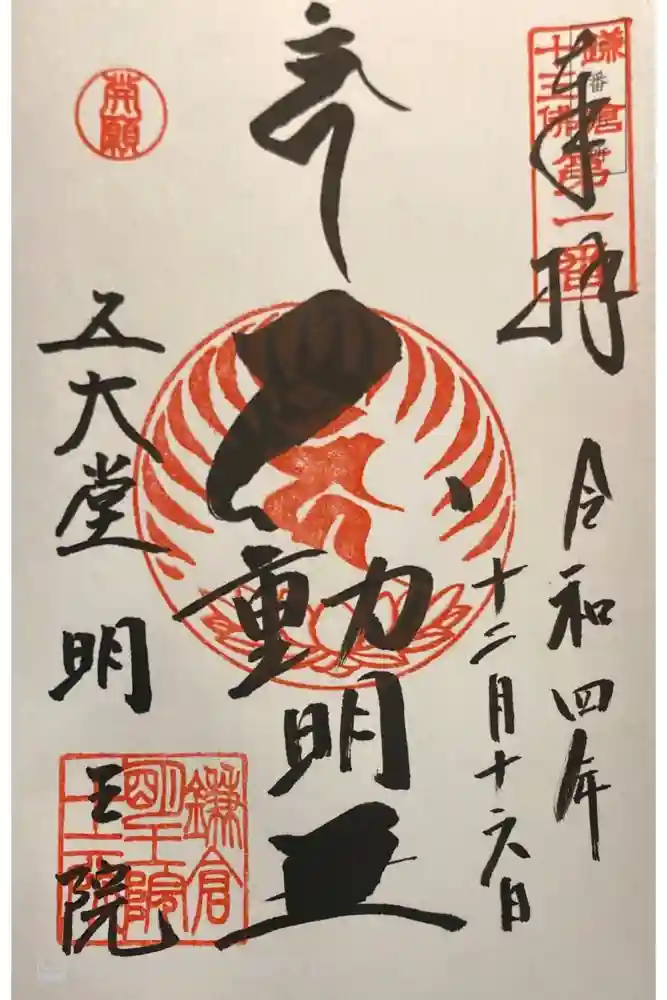 奉拝
鎌倉
十三佛第一番
令和四年
十二月十六日
不動明王
五大堂 明王院
開願